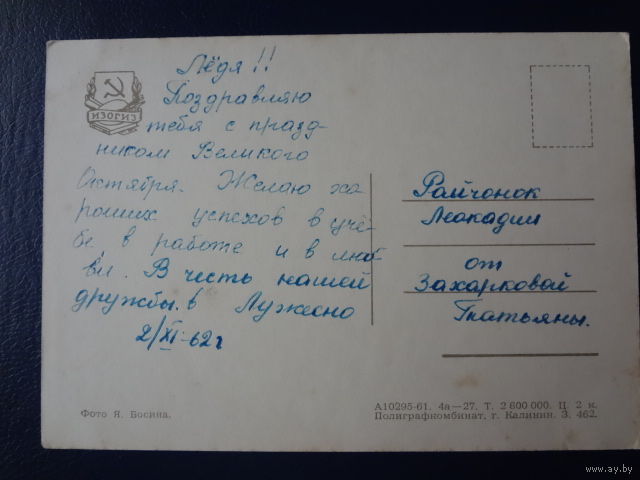 Лёдя!!
Поздравляю
тебя с празд-
ником Великого
Октября. Желаю ха
роших успехов в учё-
бе в работе и в люб-
ви. В честь нашей
дружбы. в Лужесно
2/XI-62 г
ИЗОГИЗ
Райчонок
Леокадии
от
Захарковой
Татьяны.
Фото Я. Босина.
А10295-61. 4а—27. Т. 2 600 000. Ц. 2 к.
Полиграфкомбинат, г. Калинин. З. 462.
au.ay.by